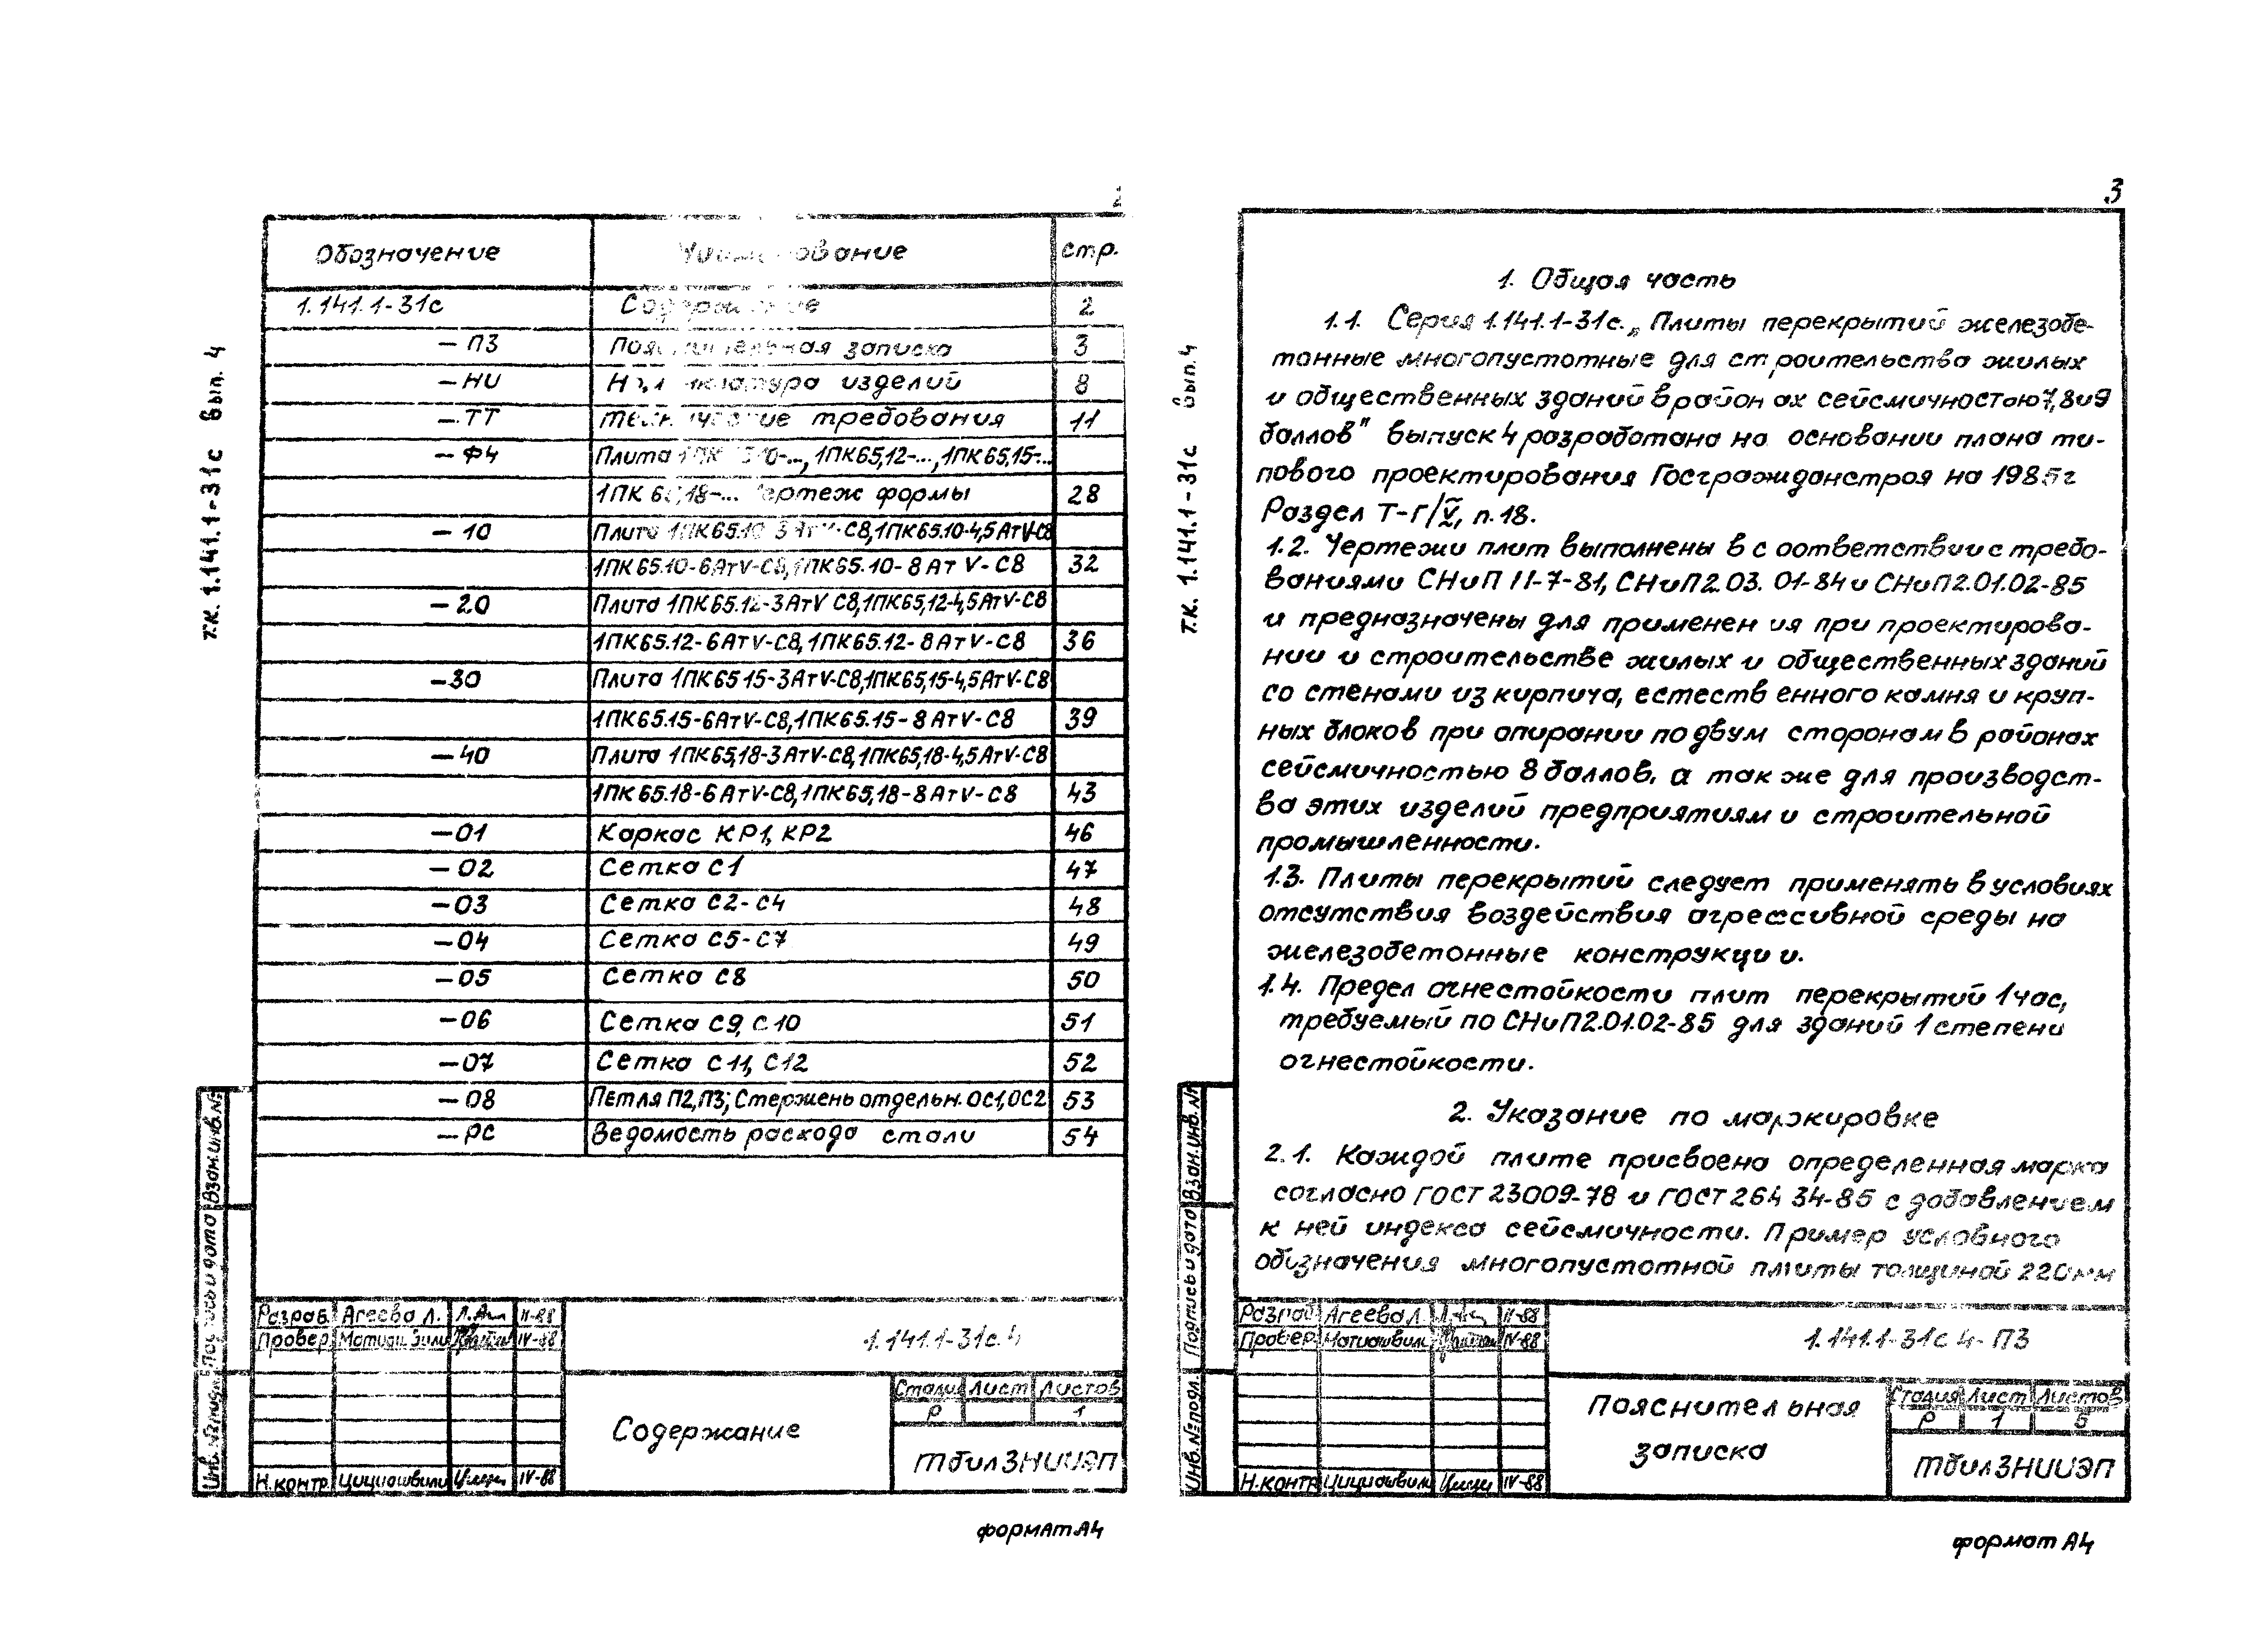 т.к. 1.141.1-31с вып. 4
Обозначение Наименование стр.
1.141.1-31с Содержание 2
— ПЗ Пояснительная записка 3
— НИ Номенклатура изделий 8
— ТТ Технические требования 11
— Ф4 Плита 1ПК 65,10-..., 1ПК65,12-..., 1ПК65,15-...
1ПК 65,18-... Чертеж формы 28
— 10 Плита 1ПК65.10-3АтV-С8, 1ПК65.10-4,5АтV-С8
1ПК65.10-6АтV-С8, 1ПК65.10-8АтV-С8 32
— 20 Плита 1ПК65.12-3АтV С8, 1ПК65,12-4,5АтV-С8
1ПК65.12-6АтV-С8, 1ПК65.12-8АтV-С8 36
— 30 Плита 1ПК65 15-3АтV-С8, 1ПК65,15-4,5АтV-С8
1ПК65.15-6АтV-С8, 1ПК65.15-8АтV-С8 39
— 40 Плита 1ПК65,18-3АтV-С8, 1ПК65,18-4,5АтV-С8
1ПК65.18-6АтV-С8, 1ПК65,18-8АтV-С8 43
— 01 Каркас КР1, КР2 46
— 02 Сетка С1 47
— 03 Сетка С2-С4 48
— 04 Сетка С5-С7 49
— 05 Сетка С8 50
— 06 Сетка С9, С10 51
— 07 Сетка С11, С12 52
— 08 Петля П2,П3; Стержень отдельн. ОС1,ОС2 53
— РС Ведомость расхода стали 54
Инв.№ подл. Подпись и дата Взам.инв.№
Разраб. Агеева Л. II-88
Провер. Матиашвили IV-88
Н.контр. Цициашвили IV-88
1.141.1-31с.4
Содержание
Стадия Лист Листов
Р 1
ТбилЗНИИЭП
формат А4
3
т.к. 1.141.1-31с вып.4
1. Общая часть
1.1. Серия 1.141.1-31с. „Плиты перекрытий железобе-
тонные многопустотные для строительства жилых
и общественных зданий в районах сейсмичностью 7,8 и 9
баллов" выпуск 4 разработана на основании плана ти-
пового проектирования Госгражданстроя на 1985г
Раздел Т-Г/IV, п.18.
1.2. Чертежи плит выполнены в соответствии с требо-
ваниями СНиП II-7-81, СНиП2.03.01-84 и СНиП2.01.02-85
и предназначены для применения при проектирова-
нии и строительстве жилых и общественных зданий
со стенами из кирпича, естественного камня и круп-
ных блоков при опирании по двум сторонам в районах
сейсмичностью 8 баллов, а также для производст-
ва этих изделий предприятиями строительной
промышленности.
1.3. Плиты перекрытий следует применять в условиях
отсутствия воздействия агрессивной среды на
железобетонные конструкции.
1.4. Предел огнестойкости плит перекрытий 1час,
требуемый по СНиП2.01.02-85 для зданий 1 степени
огнестойкости.
2. Указание по маркировке
2.1. Каждой плите присвоена определенная марка
согласно ГОСТ 23009-78 и ГОСТ 26434-85 с добавлением
к ней индекса сейсмичности. Пример условного
обозначения многопустотной плиты толщиной 220мм
Инв.№ подл. Подпись и дата Взам.инв.№
Разраб Агеева Л. II-88
Провер. Матиашвили IV-88
Н.контр Цициашвили IV-88
1.141.1-31с 4-ПЗ
Пояснительная
записка
Стадия Лист Листов
Р 1 5
ТбилЗНИИЭП
формат А4